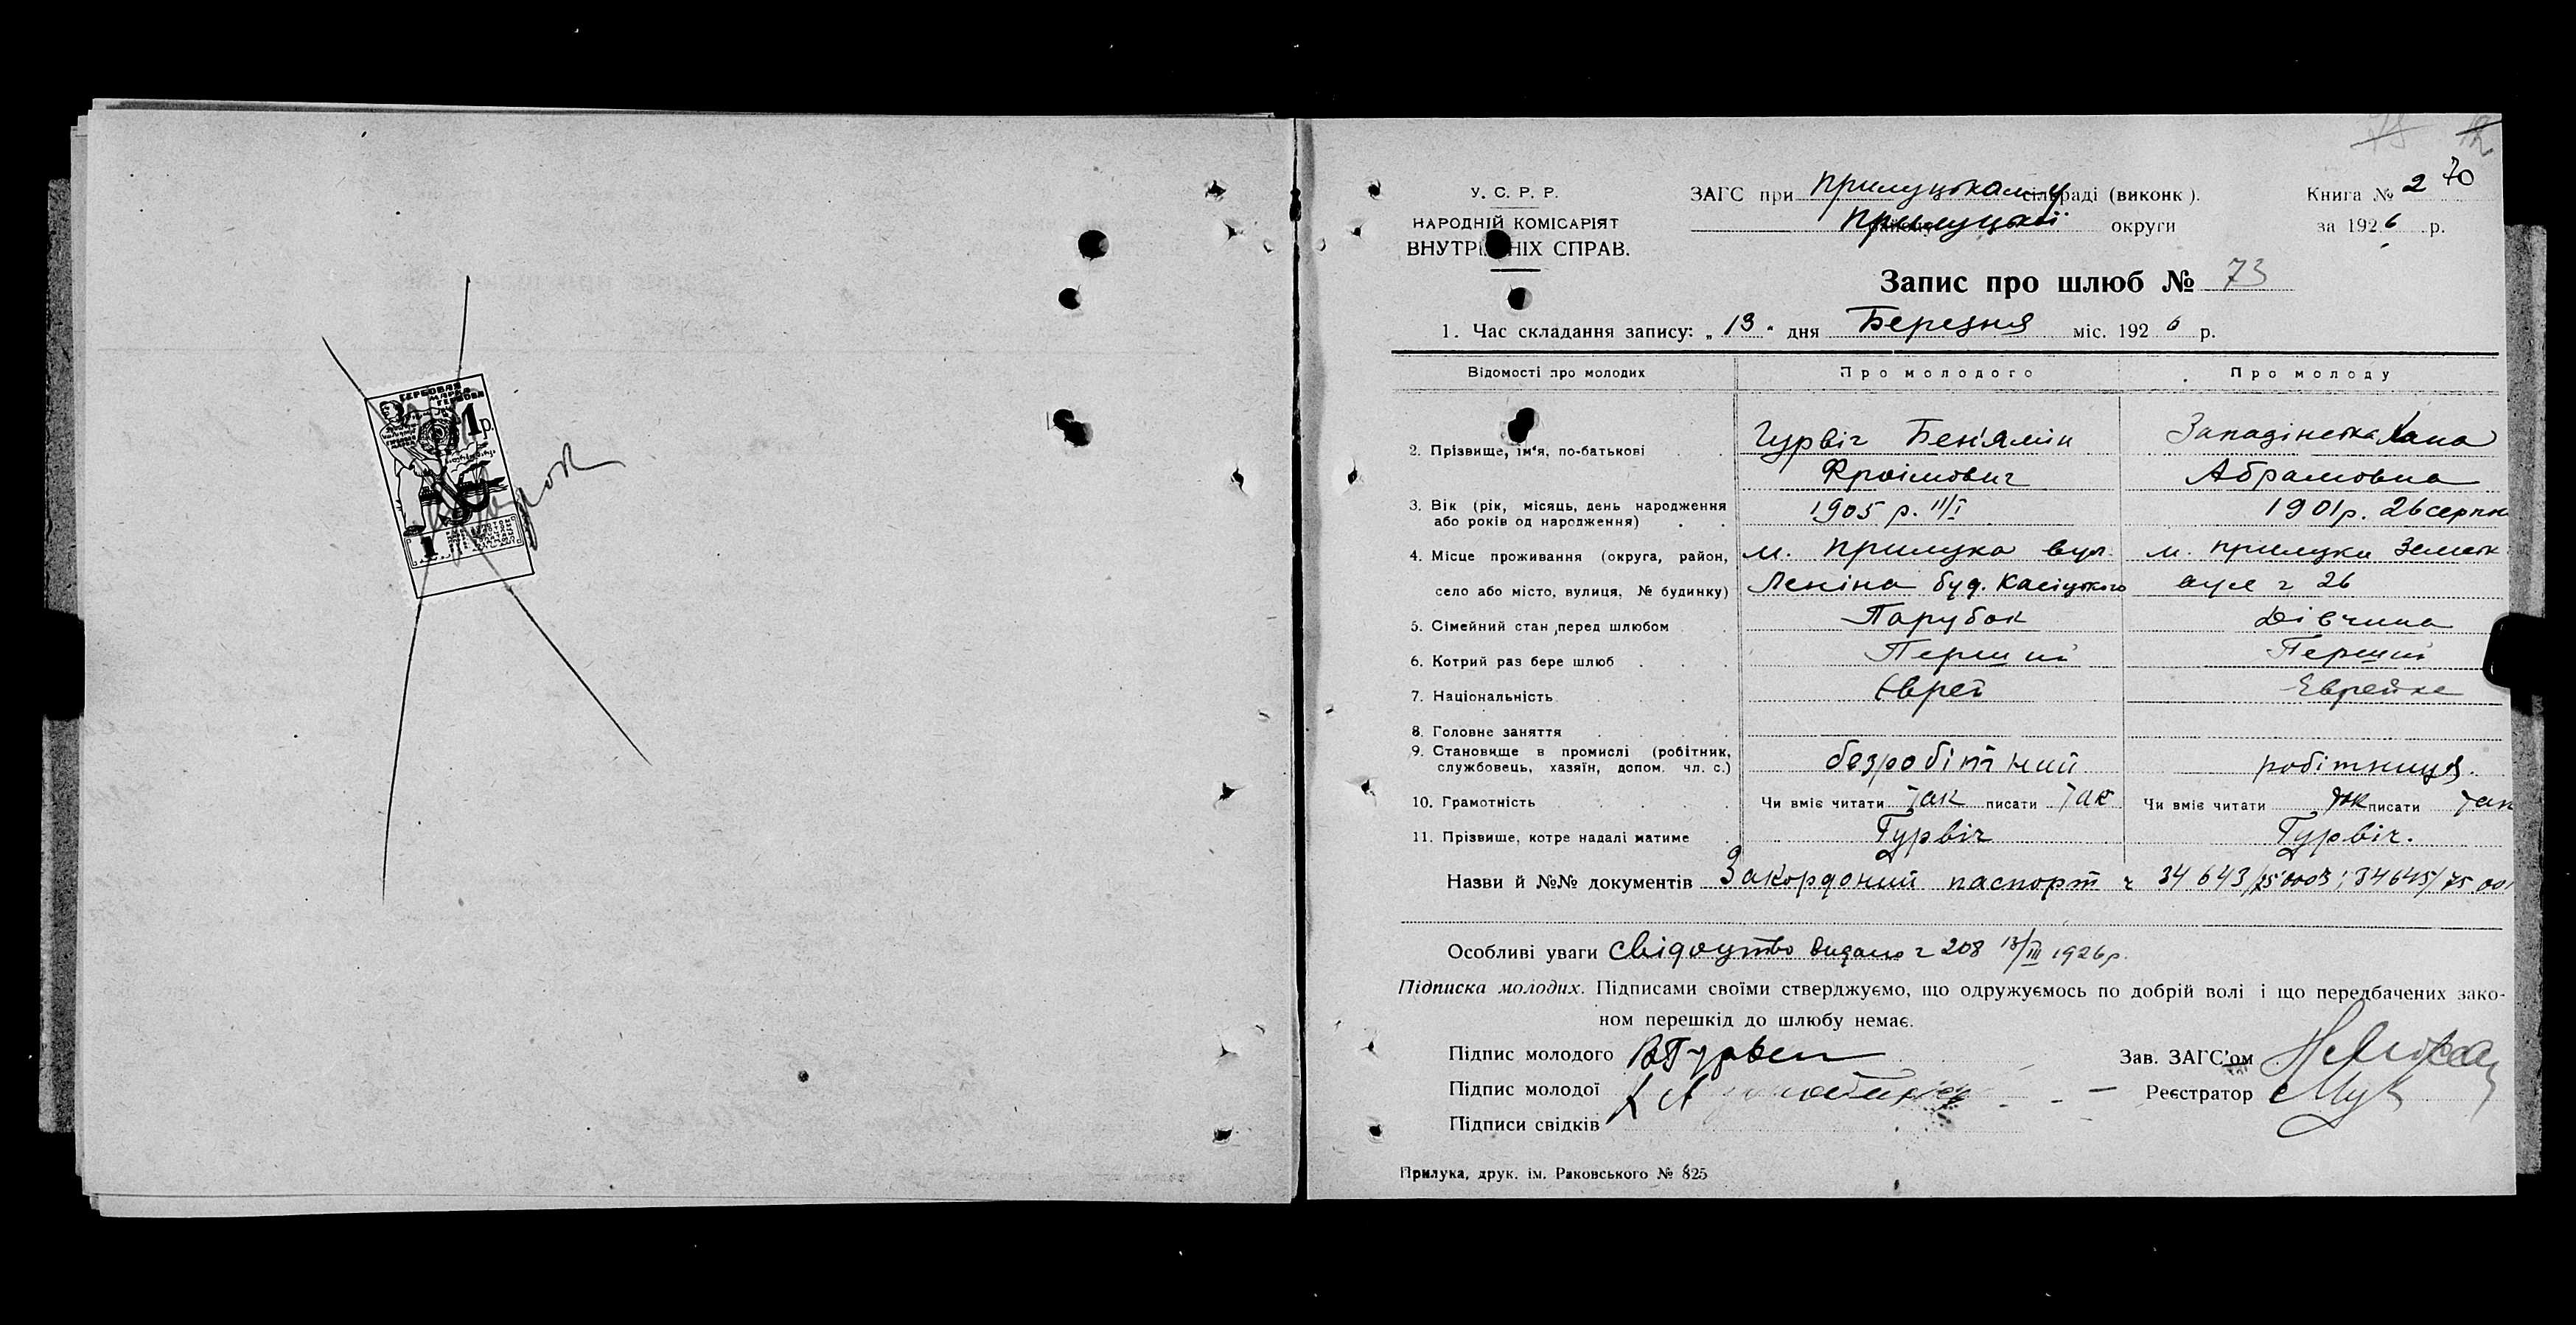 ГЕРБОВАЯ
МАРКА
ГЕРБОВИ
1 р.
1
78 70
У. С. Р. Р.
НАРОДНІЙ КОМІСАРІЯТ
ВНУТРІШНІХ СПРАВ.
ЗАГС при Прилуцькому сільраді (виконк).
Прилуцької округи
Книга № 2
за 1926 р.
Запис про шлюб № 73
1. Час складання запису: „13" дня Березня міс. 1926 р.
Відомості про молодих Про молодого Про молоду
2. Прізвище, ім'я, по-батькові Гурвіч Бен'ямін Западінська Хана
Фроімович Абрамовна
3. Вік (рік, місяць, день народження або років од народження) 1905 р. 11/I 1901 р. 26 серпн
4. Місце проживання (округа, район, м. Прилука вул. м. Прилуки Земськ
село або місто, вулиця, № будинку) Леніна буд. Касіцького вул ч 26
5. Сімейний стан перед шлюбом Парубок Дівчина
6. Котрий раз бере шлюб Перший Перший
7. Національність Єврей Еврейка
8. Головне заняття
9. Становище в промислі (робітник, службовець, хазяїн, допом. чл. с.) безробітний робітниця.
10. Грамотність Чи вміє читати так писати так Чи вміє читати так писати так
11. Прізвище, котре надалі матиме Гурвіч Гурвіч.
Назви й №№ документів Закордоний паспорт ч 34643/75'0003; 34645/75.001
Особливі уваги Свідоцтво видано ч 208 13/III 1926 р.
Підписка молодих. Підписами своїми стверджуємо, що одружуємось по добрій волі і що передбачених зако-
ном перешкід до шлюбу немає.
Підпис молодого Зав. ЗАГС'ом
Підпис молодої Реєстратор
Підписи свідків
Прилука, друк. ім. Раковського № 825